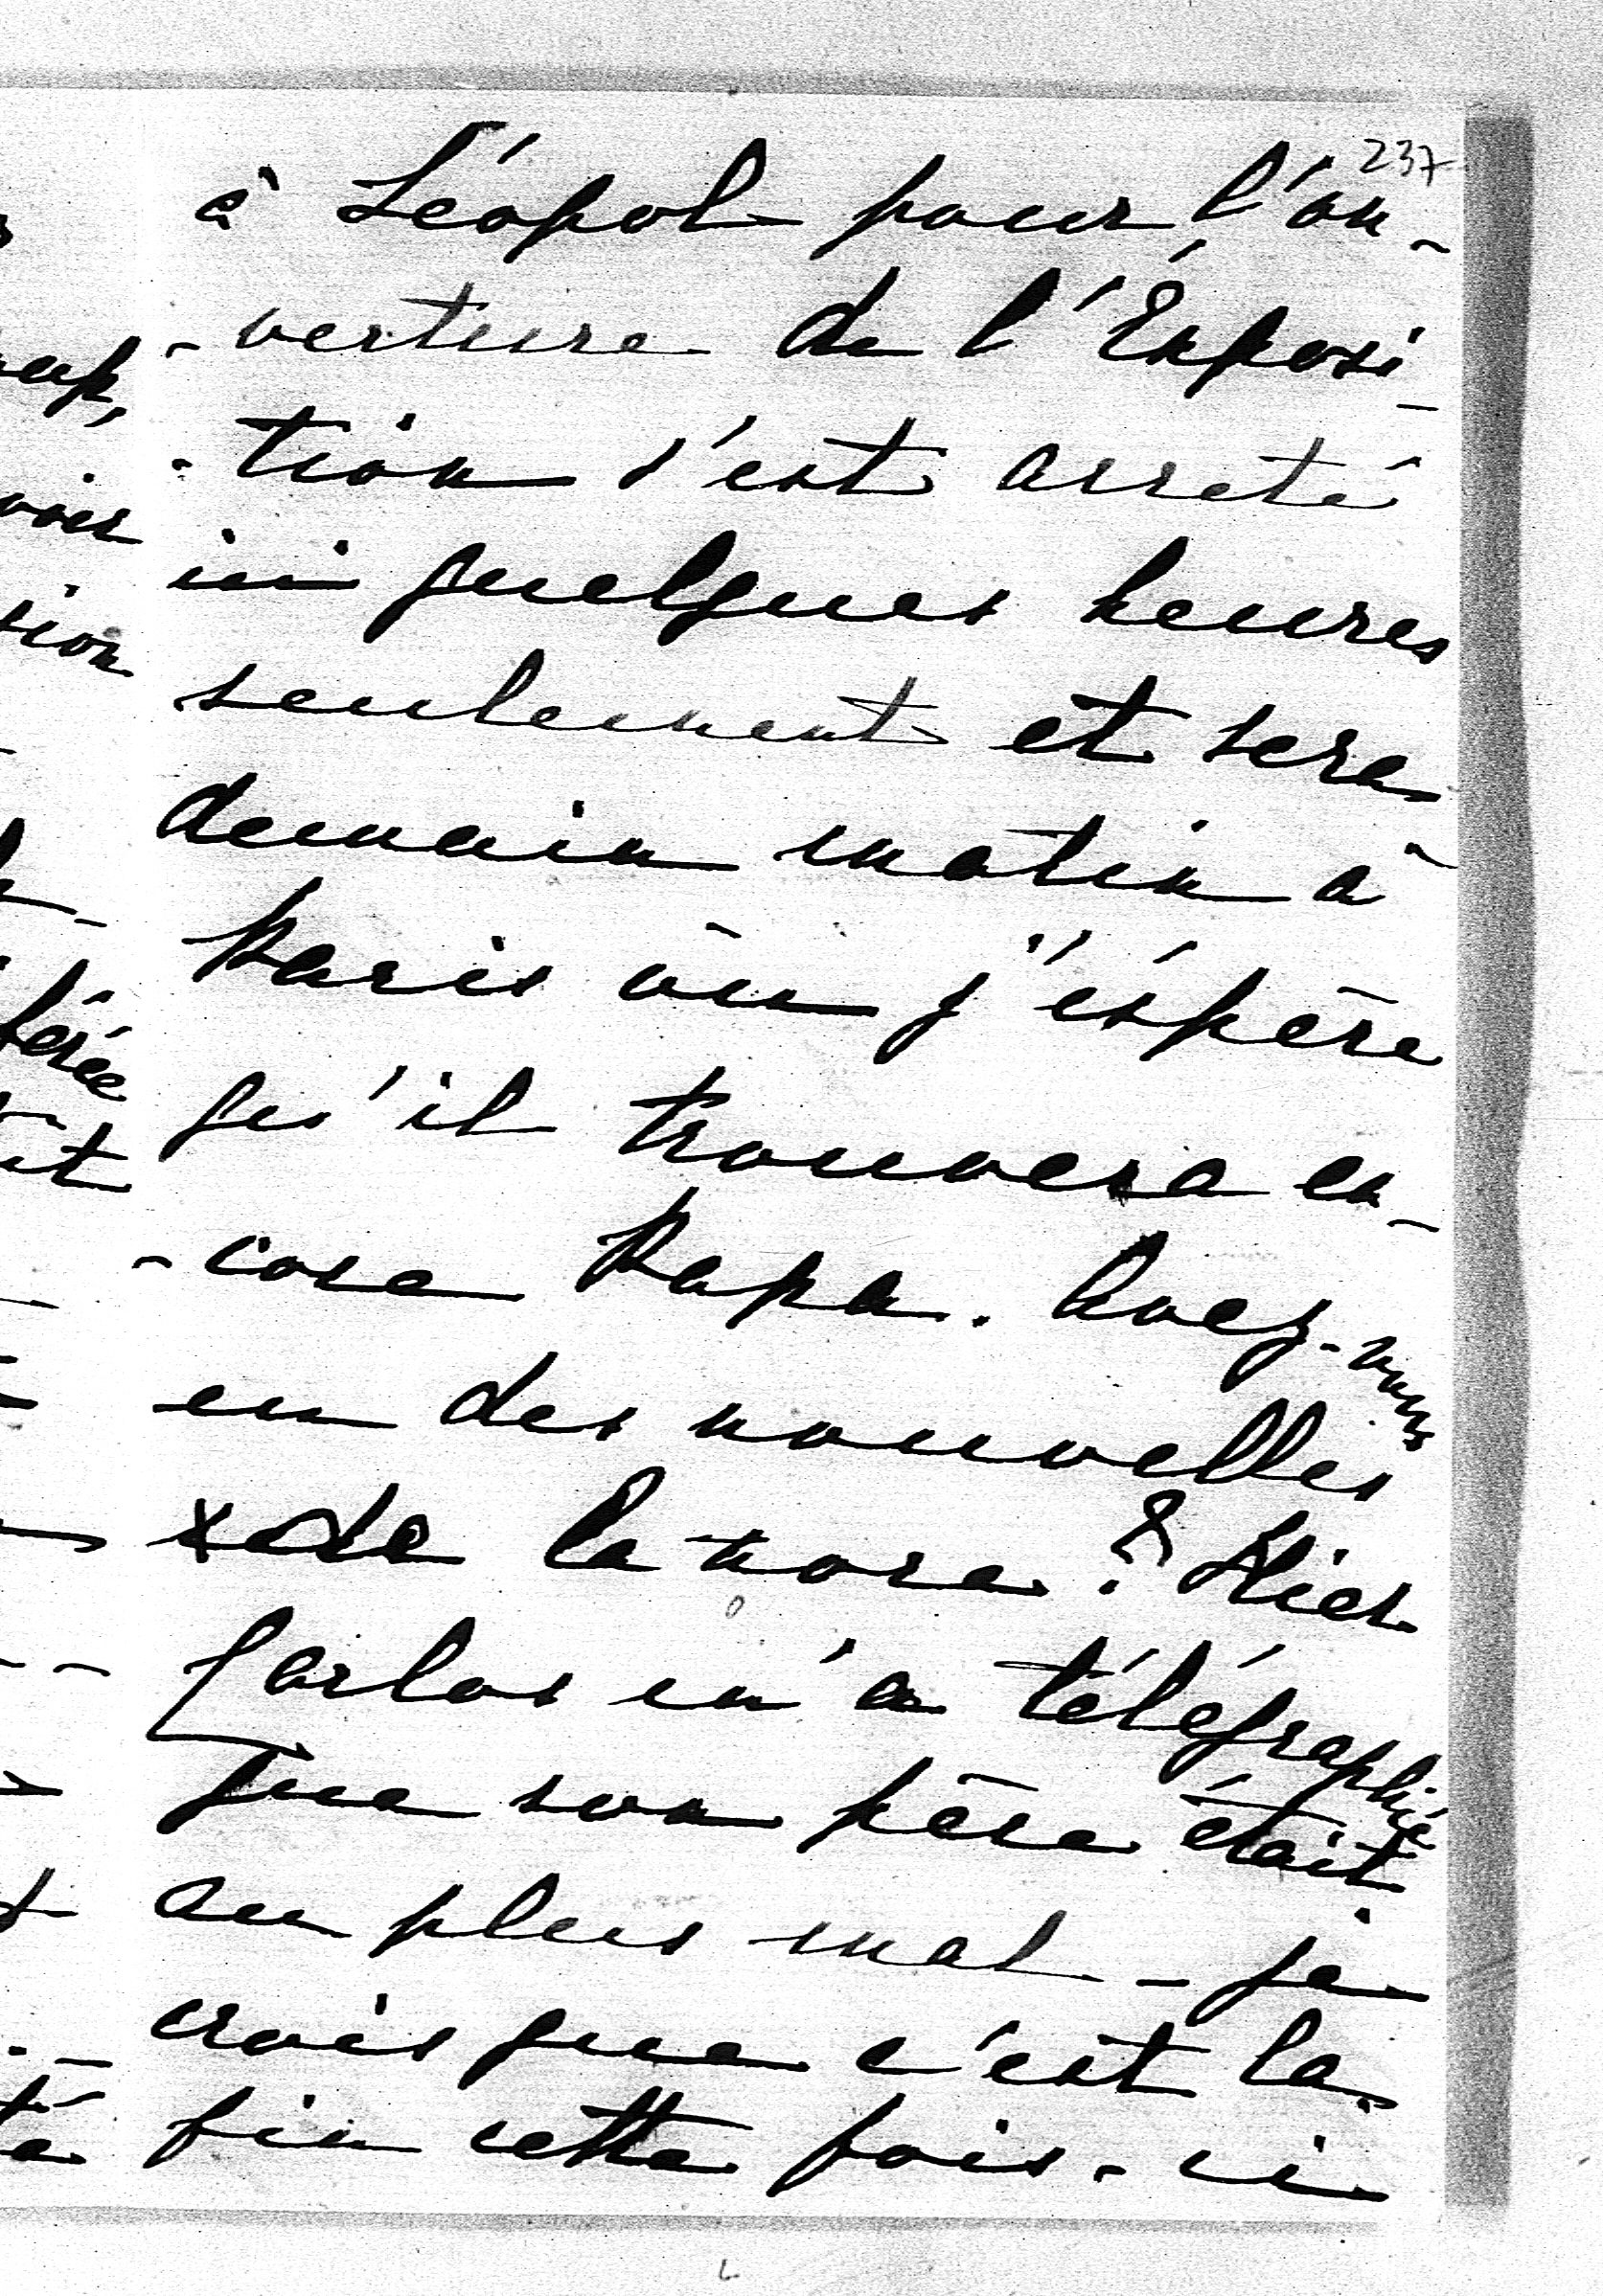 237
à Léopol pour l'ou-
-verture de l'Exposi-
-tion s'est arreté
ici quelques heures
seulement et sera
demain matin à
Paris où j'éspère
qu'il trouvera en-
-core Papa. Avez-vous
eu des nouvelles
x de la nora? Hier
Carlos m'a télégraphié
que son père était
au plus mal - je
crois que c'est la
fin cette fois-ci